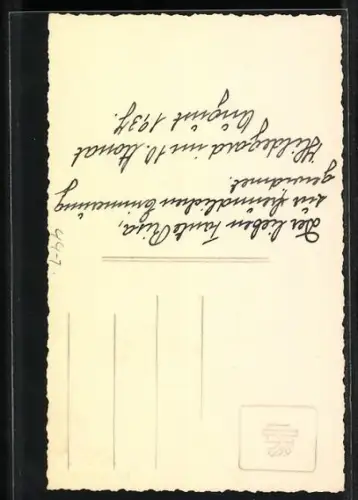 Der lieben Tante Risa,
zur freundlichen Erinnerung
gewidmet.
Hildegard im 10. Monat
August 1937.
44-7.